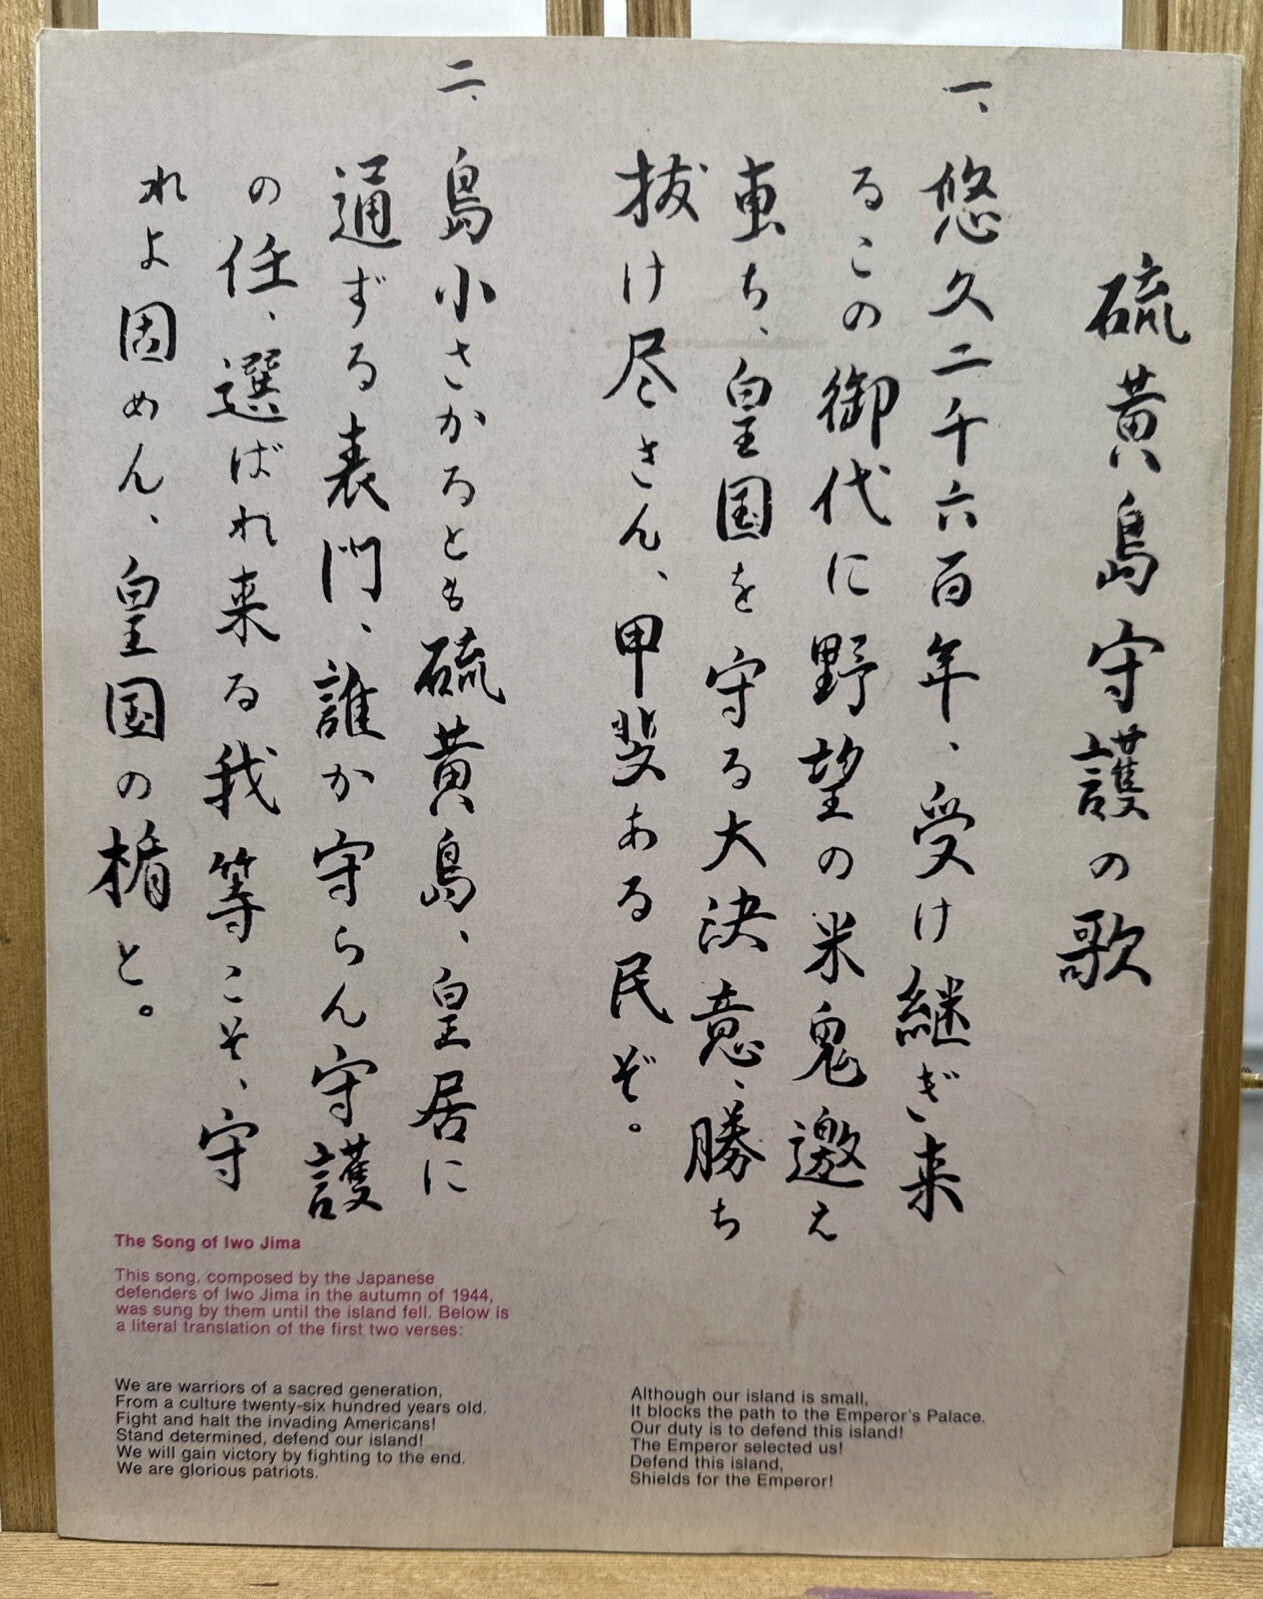 硫黄島守護の歌
一、悠久二千六百年、受け継ぎ来
るこの御代に野望の米鬼邀え
ち、皇国を守る大決意、勝ち
抜け尽さん、甲斐ある民ぞ。
二、島小さかるとも硫黄島、皇居に
通ずる表門、誰か守らん守護
の任、選ばれ来る我等こそ、守
れよ固めん、皇国の楯と。
The Song of Iwo Jima
This song, composed by the Japanese
defenders of Iwo Jima in the autumn of 1944,
was sung by them until the island fell. Below is
a literal translation of the first two verses:
We are warriors of a sacred generation,
From a culture twenty-six hundred years old.
Fight and halt the invading Americans!
Stand determined, defend our island!
We will gain victory by fighting to the end.
We are glorious patriots.
Although our island is small,
It blocks the path to the Emperor's Palace.
Our duty is to defend this island!
The Emperor selected us!
Defend this island,
Shields for the Emperor!